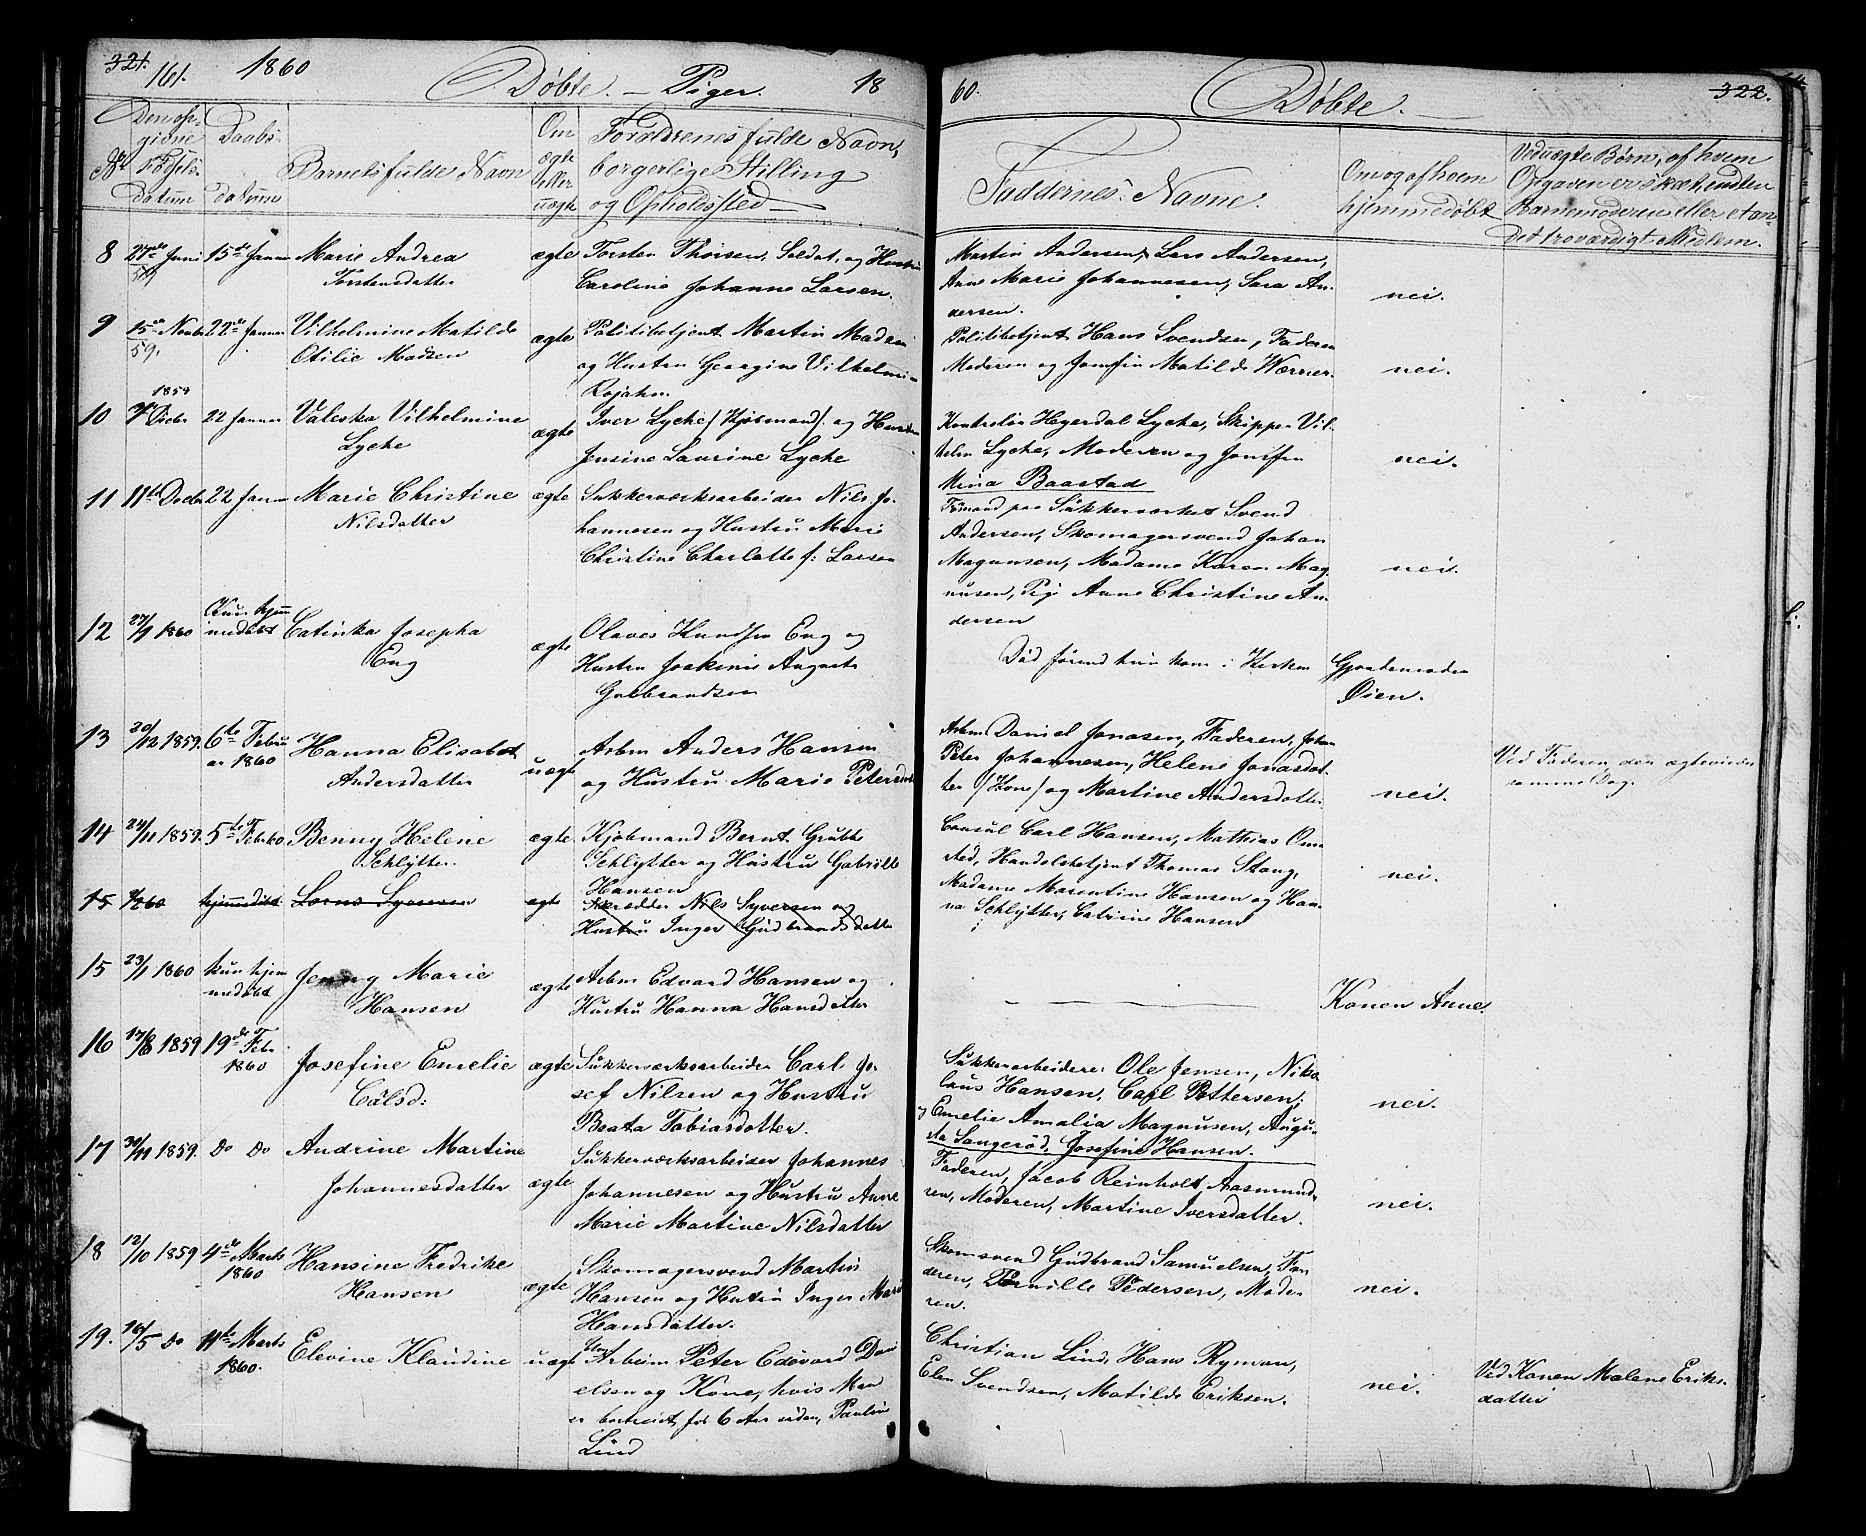 321. 161. 1860 Døbte. – Piger. 18
60. Døbte. 322.
No Den opgivne Fødselsdatum
Daabsdatum
Barnets fulde Navn
Om ægte eller uægte
Forældrenes fulde Navn,
borgerlige Stilling
og Opholdssted
Faddernes Navne.
Om og af hvem
hjemmedøbt
Ved uægte Børn, af hvem
Opgaven er skeet, enten
Barnemoderen eller et an
det troværdigt Medlem.
8 27de Juni 59 15de Januar Marie Andrea
Torstensdatter
ægte
Torsten Thoisen, Soldat, og Hustru
Caroline Johanne Larsen.
Martin Andersen, Lars Andersen,
Anne Marie Johannesen, Sara An-
dersen.
nei.
9 15de Novbr 59. 22de Januar Vilhelmine Matilde
Otilie Madsen
ægte
Politibetjent Martin Madsen
og Hustru Georgine Vilhelmine
Rojahn
Politibetjent Hans Svendsen, Faderen
Moderen og Jomfru Matilde Wærner.
nei.
10 1859 Decbr 22 Januar Valeska Vilhelmine
Lyche
ægte
Iver Lyche (Kjøbmand) og Hustru
Jensine Laurine Lyche
Kontrolør Hegerdal Lyche, Skipper Vil-
helm Lyche, Moderen og Jomfru
Mina Baastad
nei.
11 11te Decbr 22 Januar Marie Christine
Nilsdatter
ægte
Sukkerværksarbeider Nils Jo-
hannesen og Hustru Marie
Christine Charlotte f: Larsen
Formand paa Sukkerverket Svend
Andersen, Skomagersvend Johan
Magnusen, Madame Karen Mag-
nusen, Pige Anne Christine An-
dersen
nei.
12 27/1 1860 Kun hjem
medøbt Catinka Josepha
Eng
ægte
Olaves Knudsen Eng og
Hustru Joakine Auguste
Gulbrandsen
Død førend hun kom i Kirken
Gjordemoder
Øien.
13 20/12 1859. 6te Febru
ar 1860 Hanna Elisabet
Andersdatter
uægte
Arbm Anders Hansen
og Hustru Marie Petersd
Arbm Daniel Jonasen, Faderen, Johan
Peter Johannesen, Helene Jonasdat-
ter (Kone) og Martine Andersdatter
nei.
Ved Faderen, der ægtevies
samme Dag.
14 24/11 1859. 5te Febr 60 Benny Helene
Schlytter.
ægte
Kjøbmand Bernt Grubbe
Schlytter og Hustru Gabrielle
Hansen
Consul Carl Hansen, Mathias Om
sted, Handelsbetjent Thomas Stang,
Madame Marentine Hansen og Han-
na Schlytter, Catrine Hansen
nei.
15 60 hjemmedøbt Syversen
ægte
Nils Syversen og
Hustru Inger Gudbrandsdatter
15 23/1 1860 kun hjem
medøbt Jenny Marie
Hansen
ægte
Arbm Edvard Hansen og
Hustru Hanna Hansdatter
Konen Anne
16 17/8 1859 19de Feb.
1860 Josefine Emelie
Calsd:
ægte
Sukkerværksarbeider Carl Jo
sef Nilsen og Hustru
Beata Tobiasdatter.
Sukkerarbeidere Ole Jensen, Niko
laus Hansen, Carl Pettersen,
og Emelie Amalia Magnusen, Augu-
sta Sangerød, Josefine Hansen.
nei.
17 30/11 1859. Do Do Andrine Martine
Johannesdatter
ægte
Sukkerværksarbeider Johannes
Johannesen og Hustru Anne
Marie Martine Nilsdatter
Faderen, Jacob Reinholt Aasmund-
sen, Moderen, Martine Iversdatter.
nei.
18 12/10 1859 4de Marts
1860 Hansine Fredrikke
Hansen
ægte
Skomagersvend Martin
Hansen og Hustru Inger Marie
Hansdatter.
Skomsvend Gudbrand Samuelsen, Fa-
deren, Pernille Pedersen, Mode-
ren.
nei.
19. 16/5 Do 11te Marts
1860. Elevine Klaudine
uægte
Arbeim Peter Edevard Dani
elsen og Kone, hvis Man
er bortreist for 6 Aar siden, Pauline
Lind
Christian Lind, Hans Ryman,
Elen Svendsen, Matilde Eriksen.
nei.
Ved Konen Malene Eriks-
datter